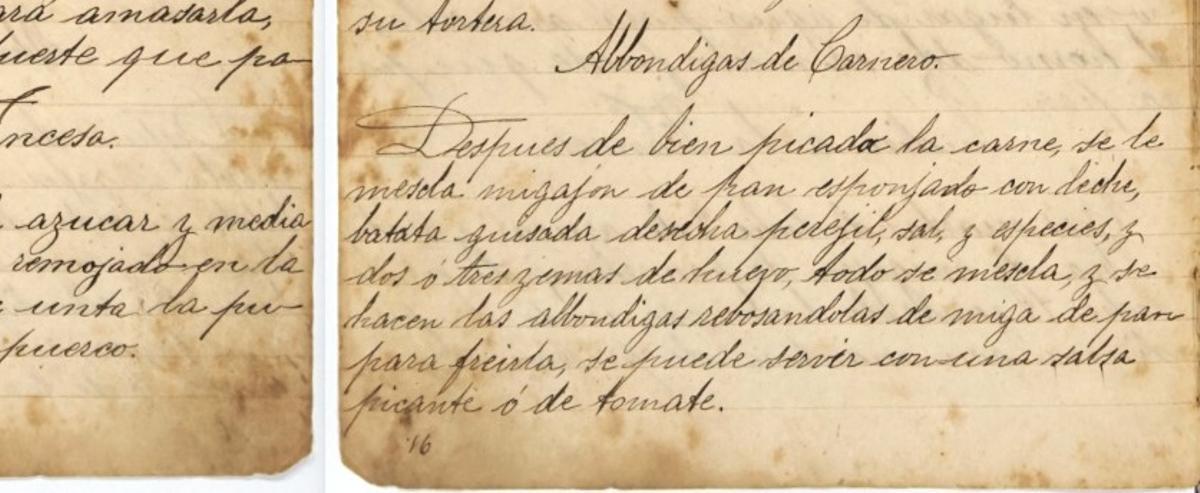 ara amasarla,
uerte que pa-
ncesa.
azucar y media
remojado en la
unta la pu-
puerco.
su tortera.
Albondigas de Carnero.
Despues de bien picada la carne, se le
mescla migajon de pan esponjado con leche,
batata guisada desecha perejil, sal, y especies, y
dos ó tres yemas de huevo, todo se mescla, y se
hacen las albondigas rebosandolas de miga de pan
para freirla, se puede servir con una salsa
picante ó de tomate.
16